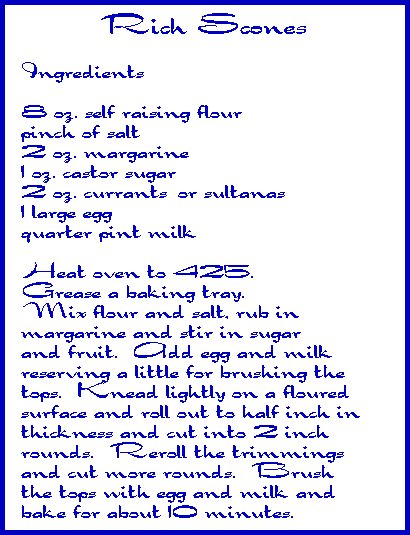 Rich Scones
Ingredients
8 oz. self raising flour
pinch of salt
2 oz. margarine
1 oz. castor sugar
2 oz. currants or sultanas
1 large egg
quarter pint milk
Heat oven to 425.
Grease a baking tray.
Mix flour and salt, rub in
margarine and stir in sugar
and fruit. Add egg and milk
reserving a little for brushing the
tops. Knead lightly on a floured
surface and roll out to half inch in
thickness and cut into 2 inch
rounds. Reroll the trimmings
and cut more rounds. Brush
the tops with egg and milk and
bake for about 10 minutes.